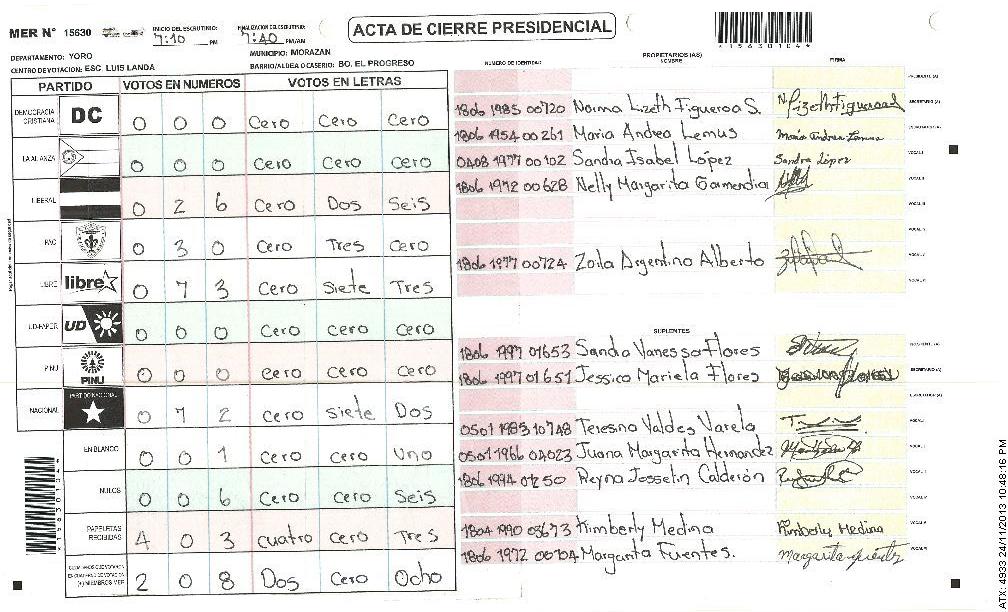 MER N° 15630
INICIO DEL ESCRUTINIO: 7:10 PM
FINALIZACION DEL ESCRUTINIO: 7:40 PM/AM
ACTA DE CIERRE PRESIDENCIAL
*15630104*
DEPARTAMENTO: YORO
MUNICIPIO: MORAZAN
CENTRO DE VOTACION: ESC. LUIS LANDA
BARRIO/ALDEA O CASERIO: BO. EL PROGRESO
PARTIDO VOTOS EN NUMEROS VOTOS EN LETRAS
DEMOCRACIA CRISTIANA DC 0 0 0 Cero Cero Cero
LA ALIANZA 0 0 0 Cero Cero Cero
LIBERAL 0 2 6 Cero Dos Seis
PAC 0 3 0 Cero Tres Cero
LIBRE libre 0 7 3 Cero Siete Tres
UD-FAPER UD 0 0 0 Cero cero cero
PINU PINU 0 0 0 cero cero cero
NACIONAL PARTIDO NACIONAL 0 7 2 cero siete Dos
EN BLANCO 0 0 1 Cero cero uno
NULOS 0 0 6 Cero cero Seis
PAPELETAS RECIBIDAS 4 0 3 cuatro cero Tres
2 0 8 Dos Cero Ocho
PROPIETARIOS (AS)
NUMERO DE IDENTIDAD NOMBRE FIRMA
PRESIDENTE (A)
1806 1985 00720 Norma Lizeth Figueroa S. SECRETARIO (A)
1806 1954 00261 Maria Andrea Lemus Maria Andrea Lemus ESCRUTADOR (A)
0408 1977 00102 Sandra Isabel López Sandra López VOCAL I
1806 1972 00628 Nelly Margarita Garmendia VOCAL II
1806 1977 00724 Zoila Argentina Alberto
SUPLENTES
1806 1997 01653 Sandra Vanessa Flores
1806 1997 01651 Jessica Mariela Flores SECRETARIO (A)
ESCRUTADOR (A)
0501 1983 10748 Teresina Valdes Varela
0501 1966 04023 Juana Margarita Hernandez
1806 1994 01250 Reyna Josselin Calderón
1804 1990 03673 Kimberly Medina Kimberly Medina
1806 1972 00704 Margarita Fuentes.
ATX: 4933 24/11/2013 10:48:16 PM